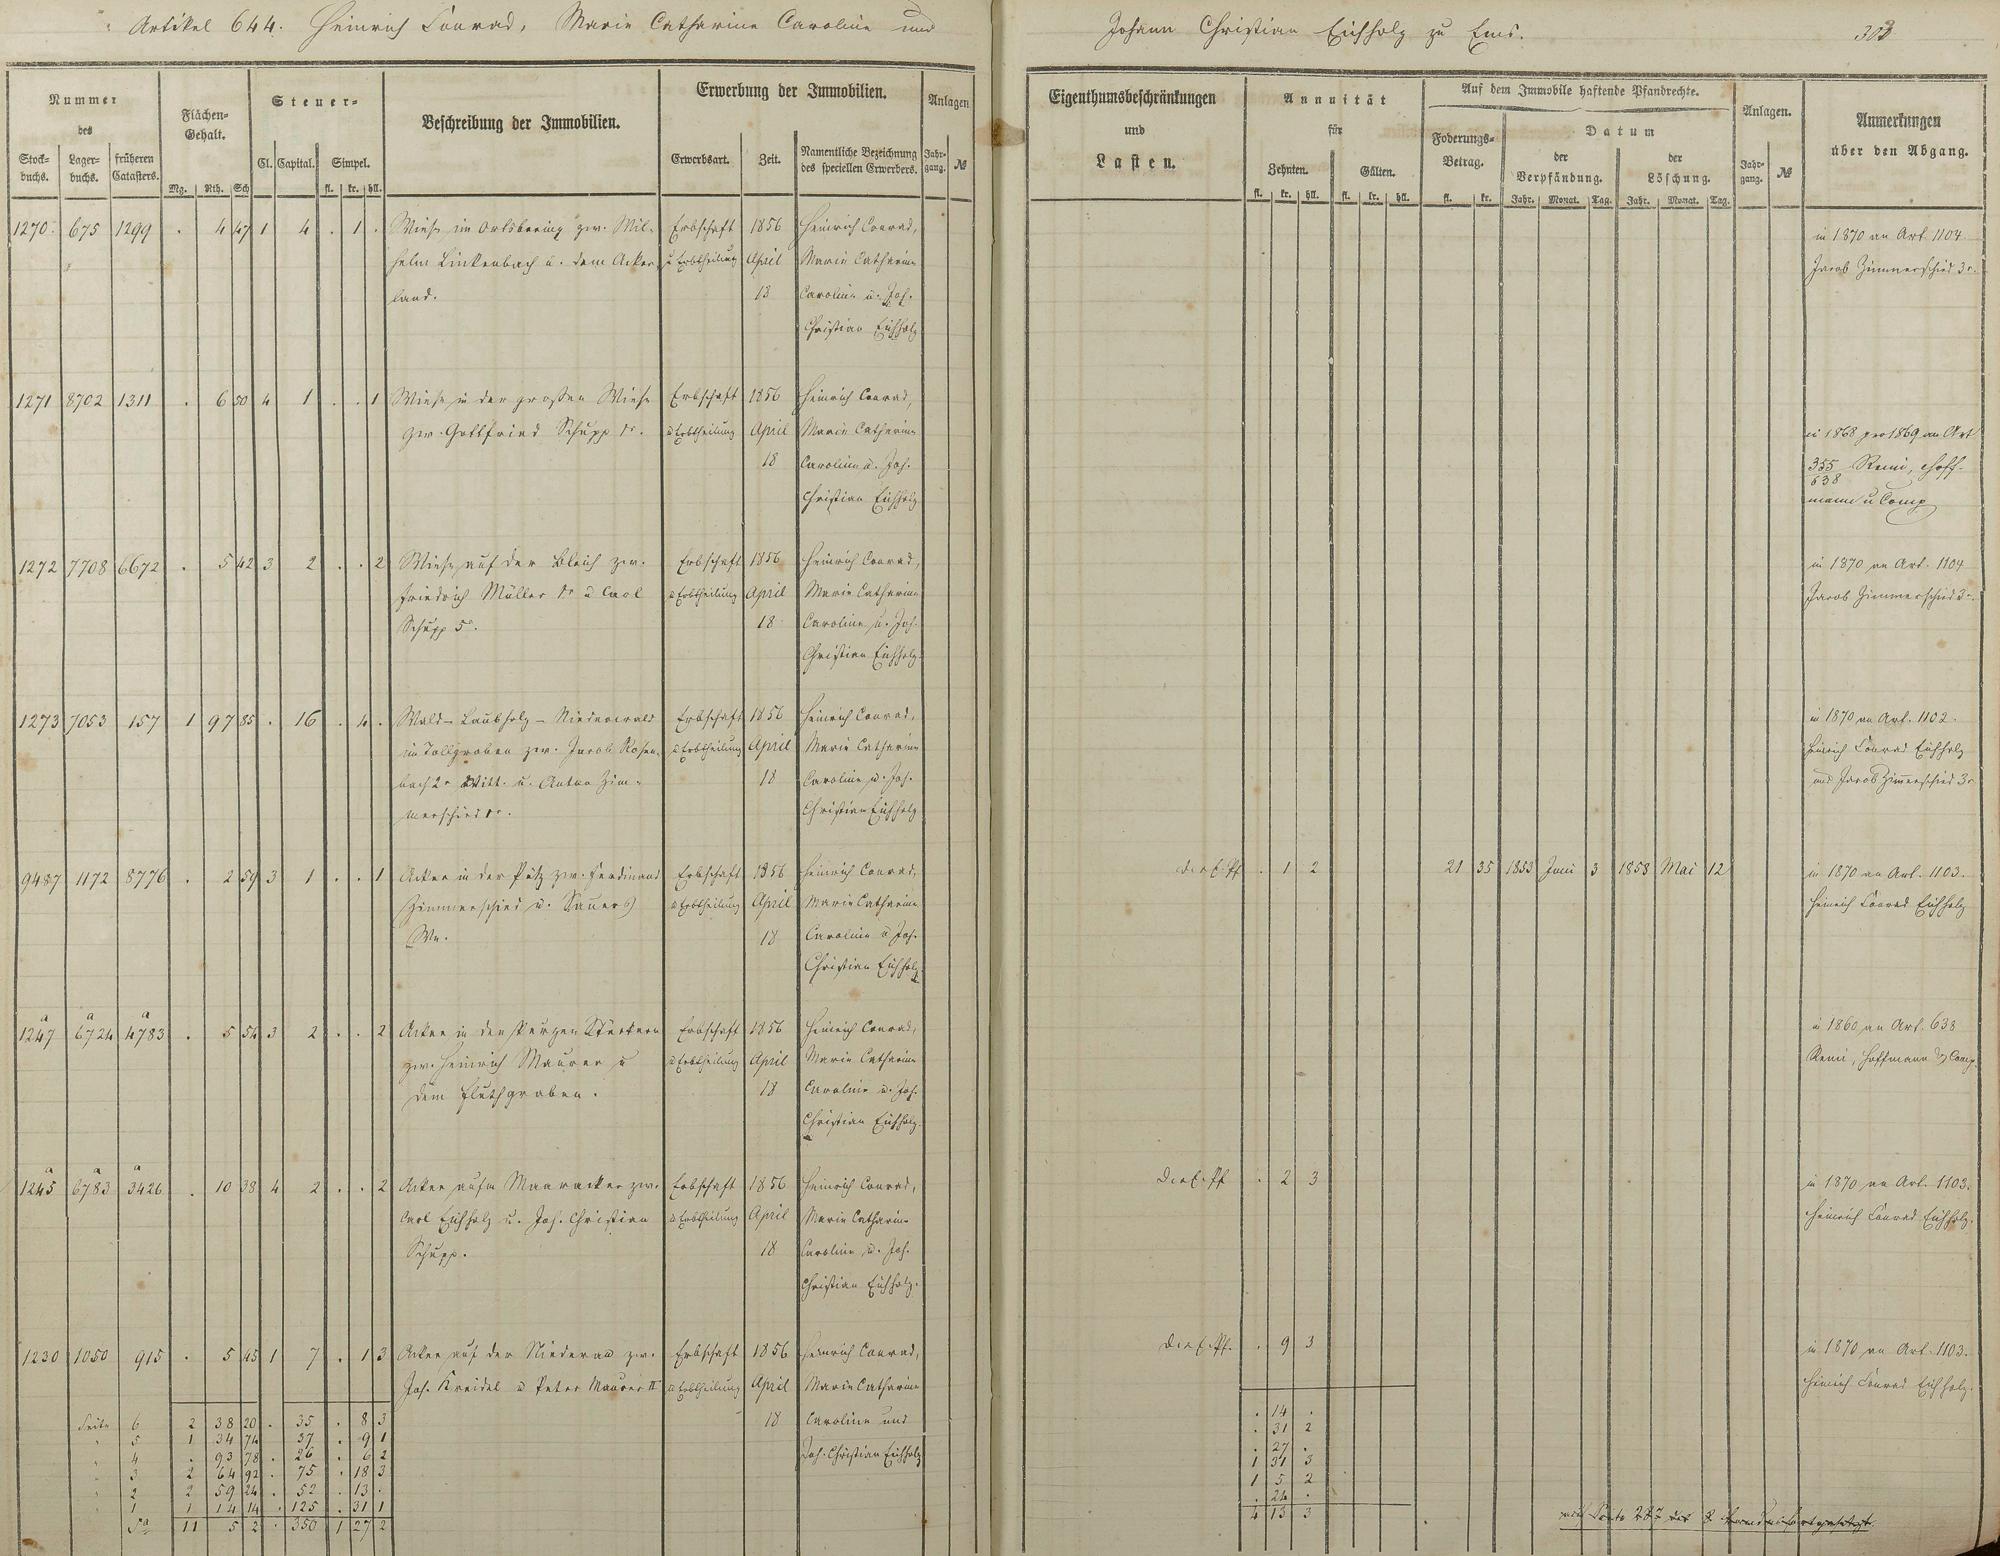 Artikel 644. Heinrich Conrad, Marie Catharine Caroline und Johann Christian Eichholz zu Ems. 303
Nummer des
Stockbuchs. Lagerbuchs. früheren Catasters.
Flächen-Gehalt.
Mg. Rth. Sch
Steuer-
Cl. Capital. Simpel.
fl. kr. hll.
Beschreibung der Immobilien.
Erwerbung der Immobilien.
Erwerbsart. Zeit. Namentliche Bezeichnung des speciellen Erwerbers.
Anlagen
Jahrgang. №
Eigenthumsbeschränkungen
und
Lasten.
Annuität
für
Zehnten. Gülten.
fl. kr. hll. fl. kr. hll.
Auf dem Immobile haftende Pfandrechte.
Foderungs-Betrag.
fl. kr.
Datum
der Verpfändung. der Löschung.
Jahr. Monat. Tag. Jahr. Monat. Tag.
Anlagen.
Jahrgang. №
Anmerkungen
über den Abgang.
1270 675 1299 . 4 47 1 4 . 1 .
Wiese im Ortsbering zw. Wil-
helm Linkenbach u. dem Acker-
land.
Erbschaft
u Erbtheilung
1856
April
18
Heinrich Conrad,
Marie Catharine
Caroline u. Joh.
Christian Eichholz
in 1870 an Art. 1104
Jacob Zimmerschied 3r.
1271 8702 1311 . 6 50 4 1 . . 1
Wiese in der großen Wiese
zw. Gottfried Schupp 1r.
Erbschaft
u Erbtheilung
1856
April
18
Heinrich Conrad,
Marie Catharine
Caroline u. Joh.
Christian Eichholz
in 1868 pro 1869 an Art
355
638
Remi, Hoff-
mann u Comp
1272 7708 6672 . 5 42 3 2 . . 2
Wiese auf der Bleich zw.
Friedrich Müller 1r u Carl
Schupp 5r.
Erbschaft
u Erbtheilung
1856
April
18
Heinrich Conrad,
Marie Catharine
Caroline u. Joh.
Christian Eichholz
in 1870 an Art. 1104
Jacob Zimmerschied 3r.
1273 7053 157 1 97 85 . 16 . 4 .
Wald- Laubholz- Niederwald
im Tollgraben zw. Jacob Rosen-
bach 2r Witt. u. Anton Zim-
merschied 1r.
Erbschaft
u Erbtheilung
1856
April
18
Heinrich Conrad,
Marie Catharine
Caroline u. Joh.
Christian Eichholz
in 1870 an Art. 1102.
Heinrich Conrad Eichholz
und Jacob Zimmerschied 3r
9487 1172 8776 . 2 59 3 1 . . 1
Acker in der Pütz zw. Ferdinand
Zimmerschied u. Sauers
We.
Erbschaft
u Erbtheilung
1856
April
18
Heinrich Conrad,
Marie Catharine
Caroline u Joh.
Christian Eichholz
. 1 2
21 35 1853 Juni 3 1858 Mai 12
in 1870 an Art. 1103.
Heinrich Conrad Eichholz
a a a
1247 6724 4783 . 5 54 3 2 . . 2
Acker in den
zw. Heinrich Maurer u
dem Fluthgraben.
Erbschaft
u Erbtheilung
1856
April
18
Heinrich Conrad,
Marie Catharine
Caroline u. Joh.
Christian Eichholz.
in 1860 an Art. 638
Remi, Hoffmann & Comp.
a a a
1245 6783 3426 . 10 38 4 2 . . 2
Acker aufm Maaracker zw.
Carl Eichholz u. Joh. Christian
Schupp.
Erbschaft
u Erbtheilung
1856
April
18
Heinrich Conrad,
Marie Catharine
Caroline u. Joh.
Christian Eichholz.
. 2 3
in 1870 an Art. 1103.
Heinrich Conrad Eichholz.
1230 1050 915 . 5 45 1 7 . 1 3
Acker auf der Niederau zw.
Joh. Kreidel u Peter Maurer II
Erbschaft
u Erbtheilung
1856
April
18
Heinrich Conrad,
Marie Catharine
Caroline und
Joh. Christian Eichholz
. 9 3
in 1870 an Art. 1103.
Heinrich Conrad Eichholz.
Seite 6 2 38 20 . 35 . 8 3
" 5 1 34 74 37 . 9 1
" 4 . 93 78 . 26 . 6 2
" 3 2 64 92 . 75 . 18 3
" 2 2 59 24 . 52 . 13 .
" 1 1 14 14 . 125 . 31 1
Sa 11 5 2 . 350 1 27 2
. 14 .
. 31 2
. 27 .
1 31 3
1 5 2
. 24 .
4 13 3